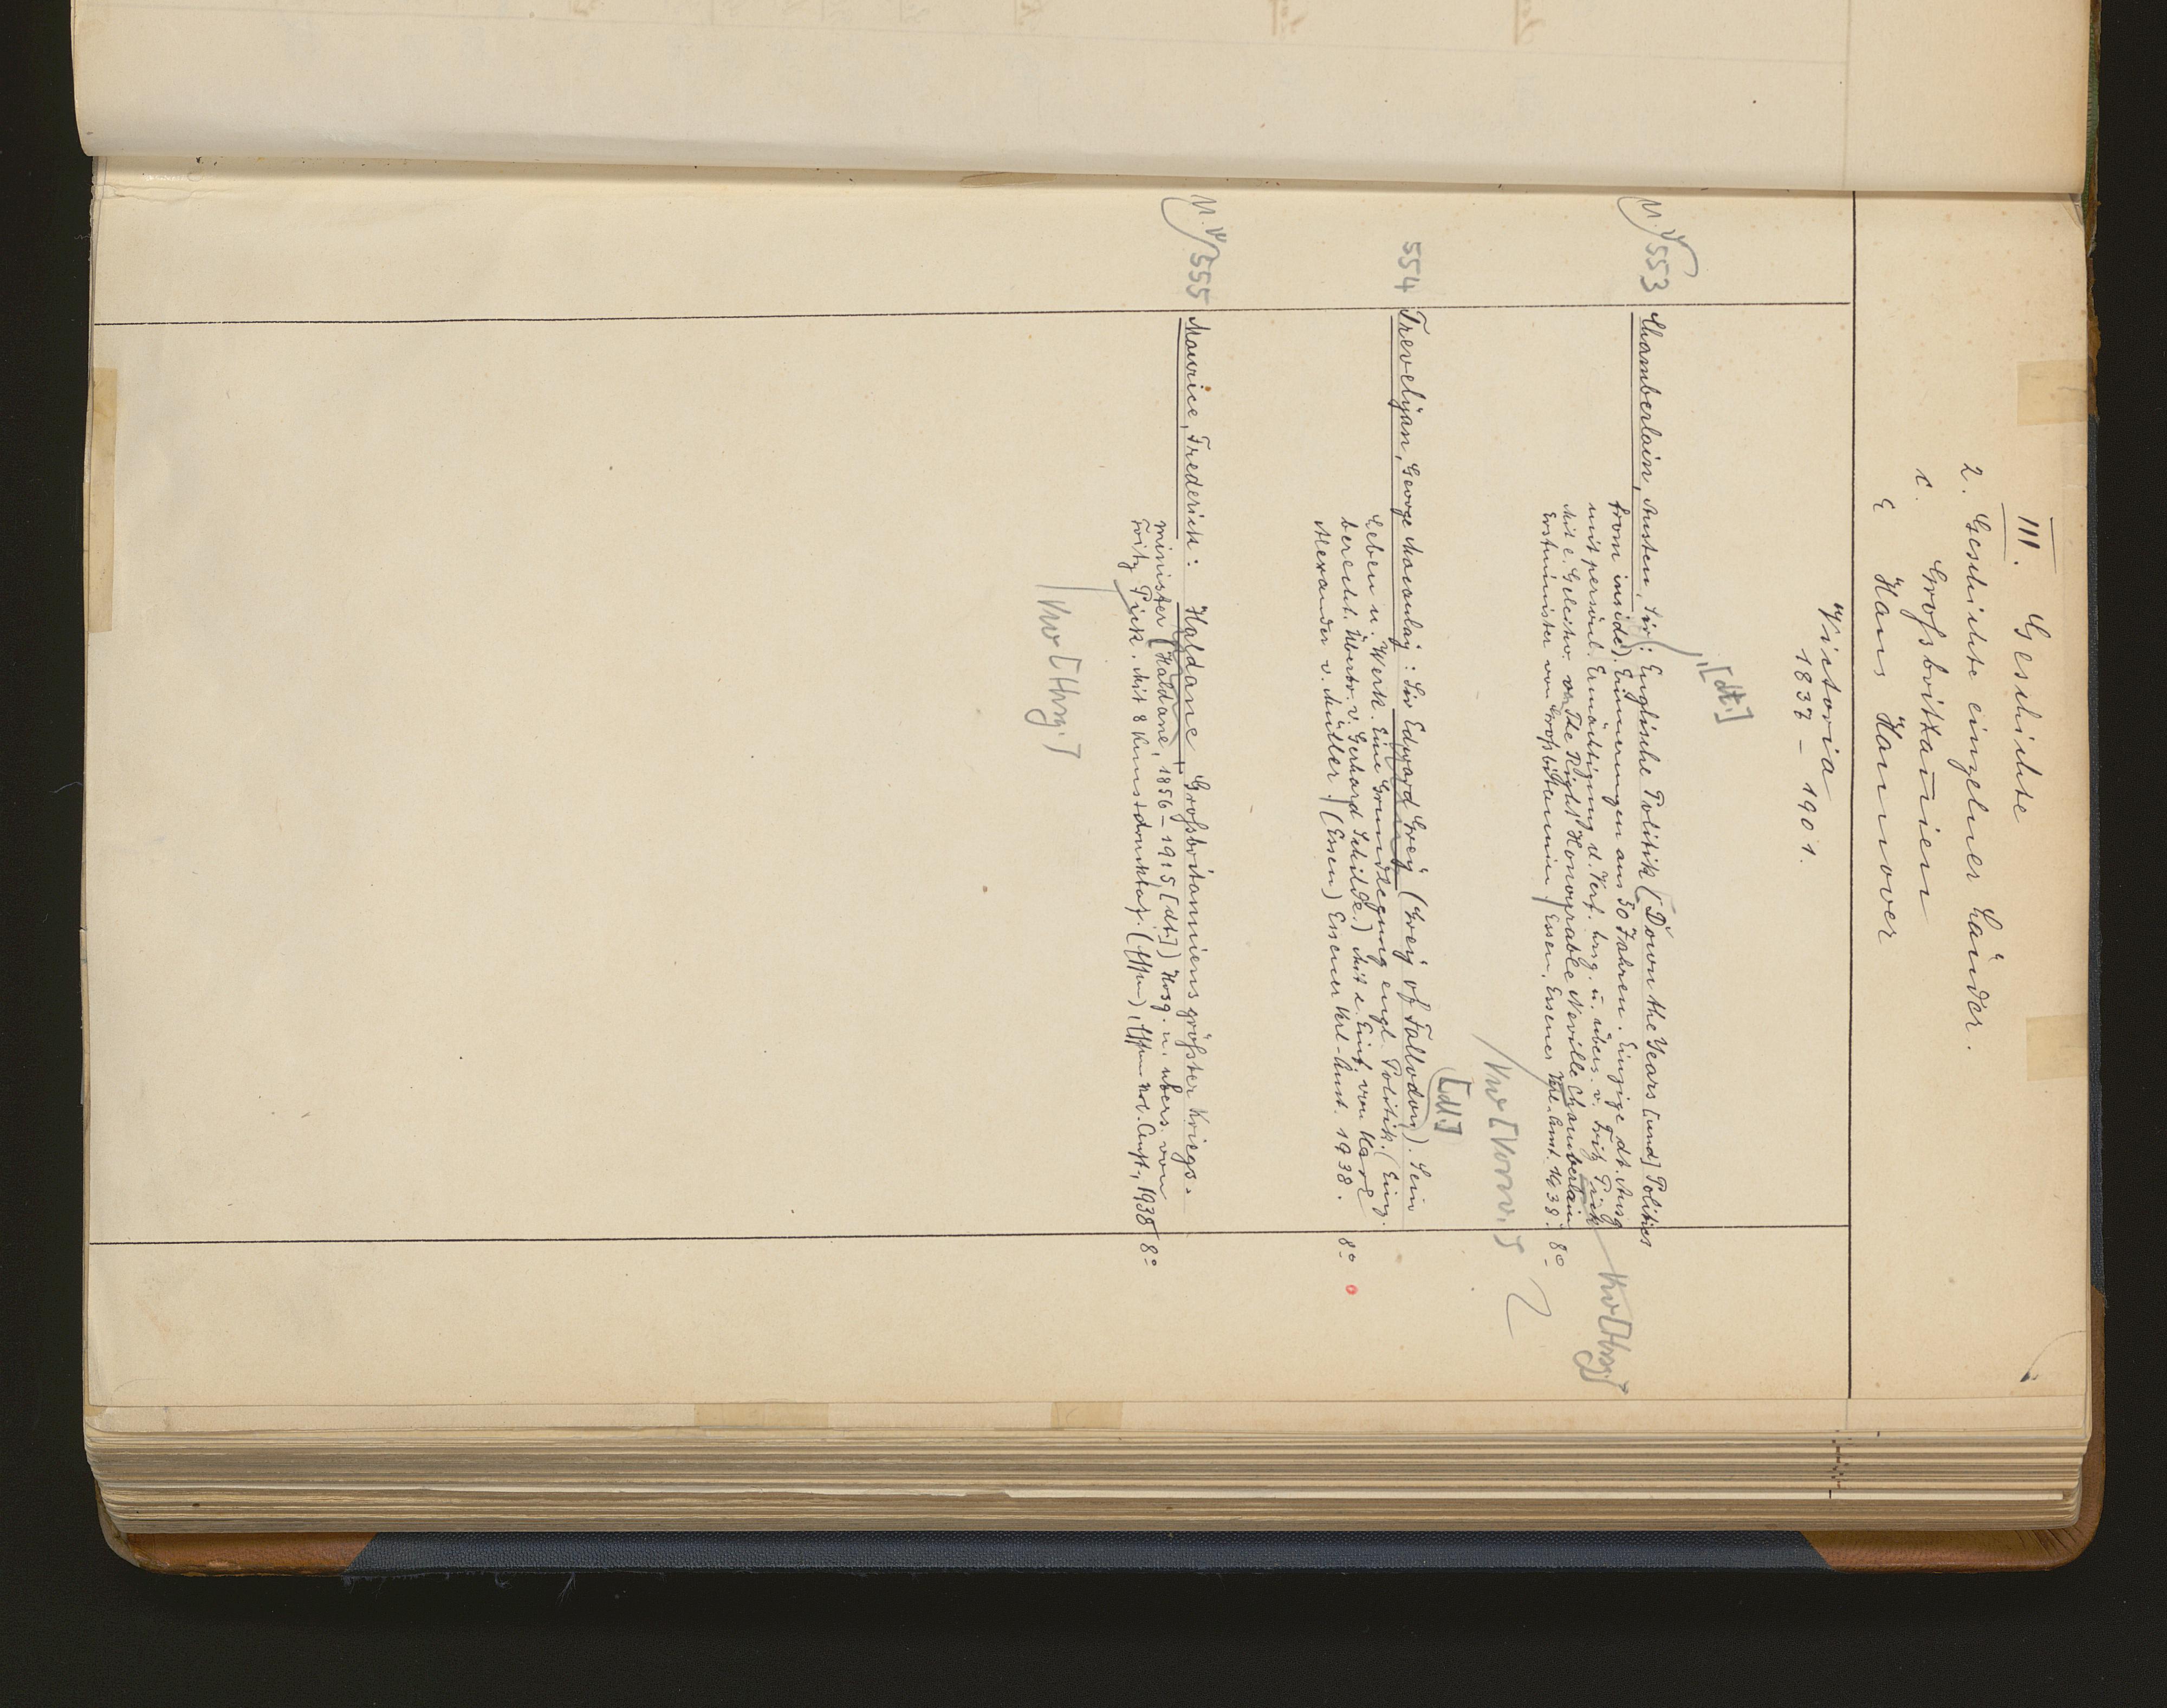 III. Geschichte
2. Geschichte einzelner Länder.
c. Großbritanien
ε Haus Hannover
Victoria
1837 - 1901.
[dt.]
553 Chamberlain, Austen, Sir: Englische Politik (Down the Years [und] Politics
from inside). Erinnerungen aus 50 Jahren. Einzige dt. Ausg.
mit persönl. Ermächtigung d. Verf. hrsg. u. übers. v. Fritz Pick
Mit e. Geleitw. von The Right Honourable Neville Chamberlain
Erstminister von Großbritannien / Essen, Essener Verl.-Anst. 1938. 8°
Kvo [Hrsg.]
Kvo [Vorw.]
[dt.]
554 Trevelyan, George Macaulay: Sir Edward Grey (Grey of Fallodon). Sein
Leben u. Werk. Eine Grundlegung engl. Politik. (Einz.
berecht. Übertr. v. Gerhard Schilde.) Mit e. Einf. von Karl
Alexander v. Müller. (Essen) Essener Verl.-Anst. 1938. 8°
555 Maurice, Frederick: Haldane, Großbritanniens größter Kriegs-
minister (Haldane, 1856-1915, [dt.]) Hrsg. u. übers. von
Fritz Pick. Mit 8 Kunstdrucktaf. (Essen), Essener Verl. Anst., 1938 8°
Kvo [Hrsg.]